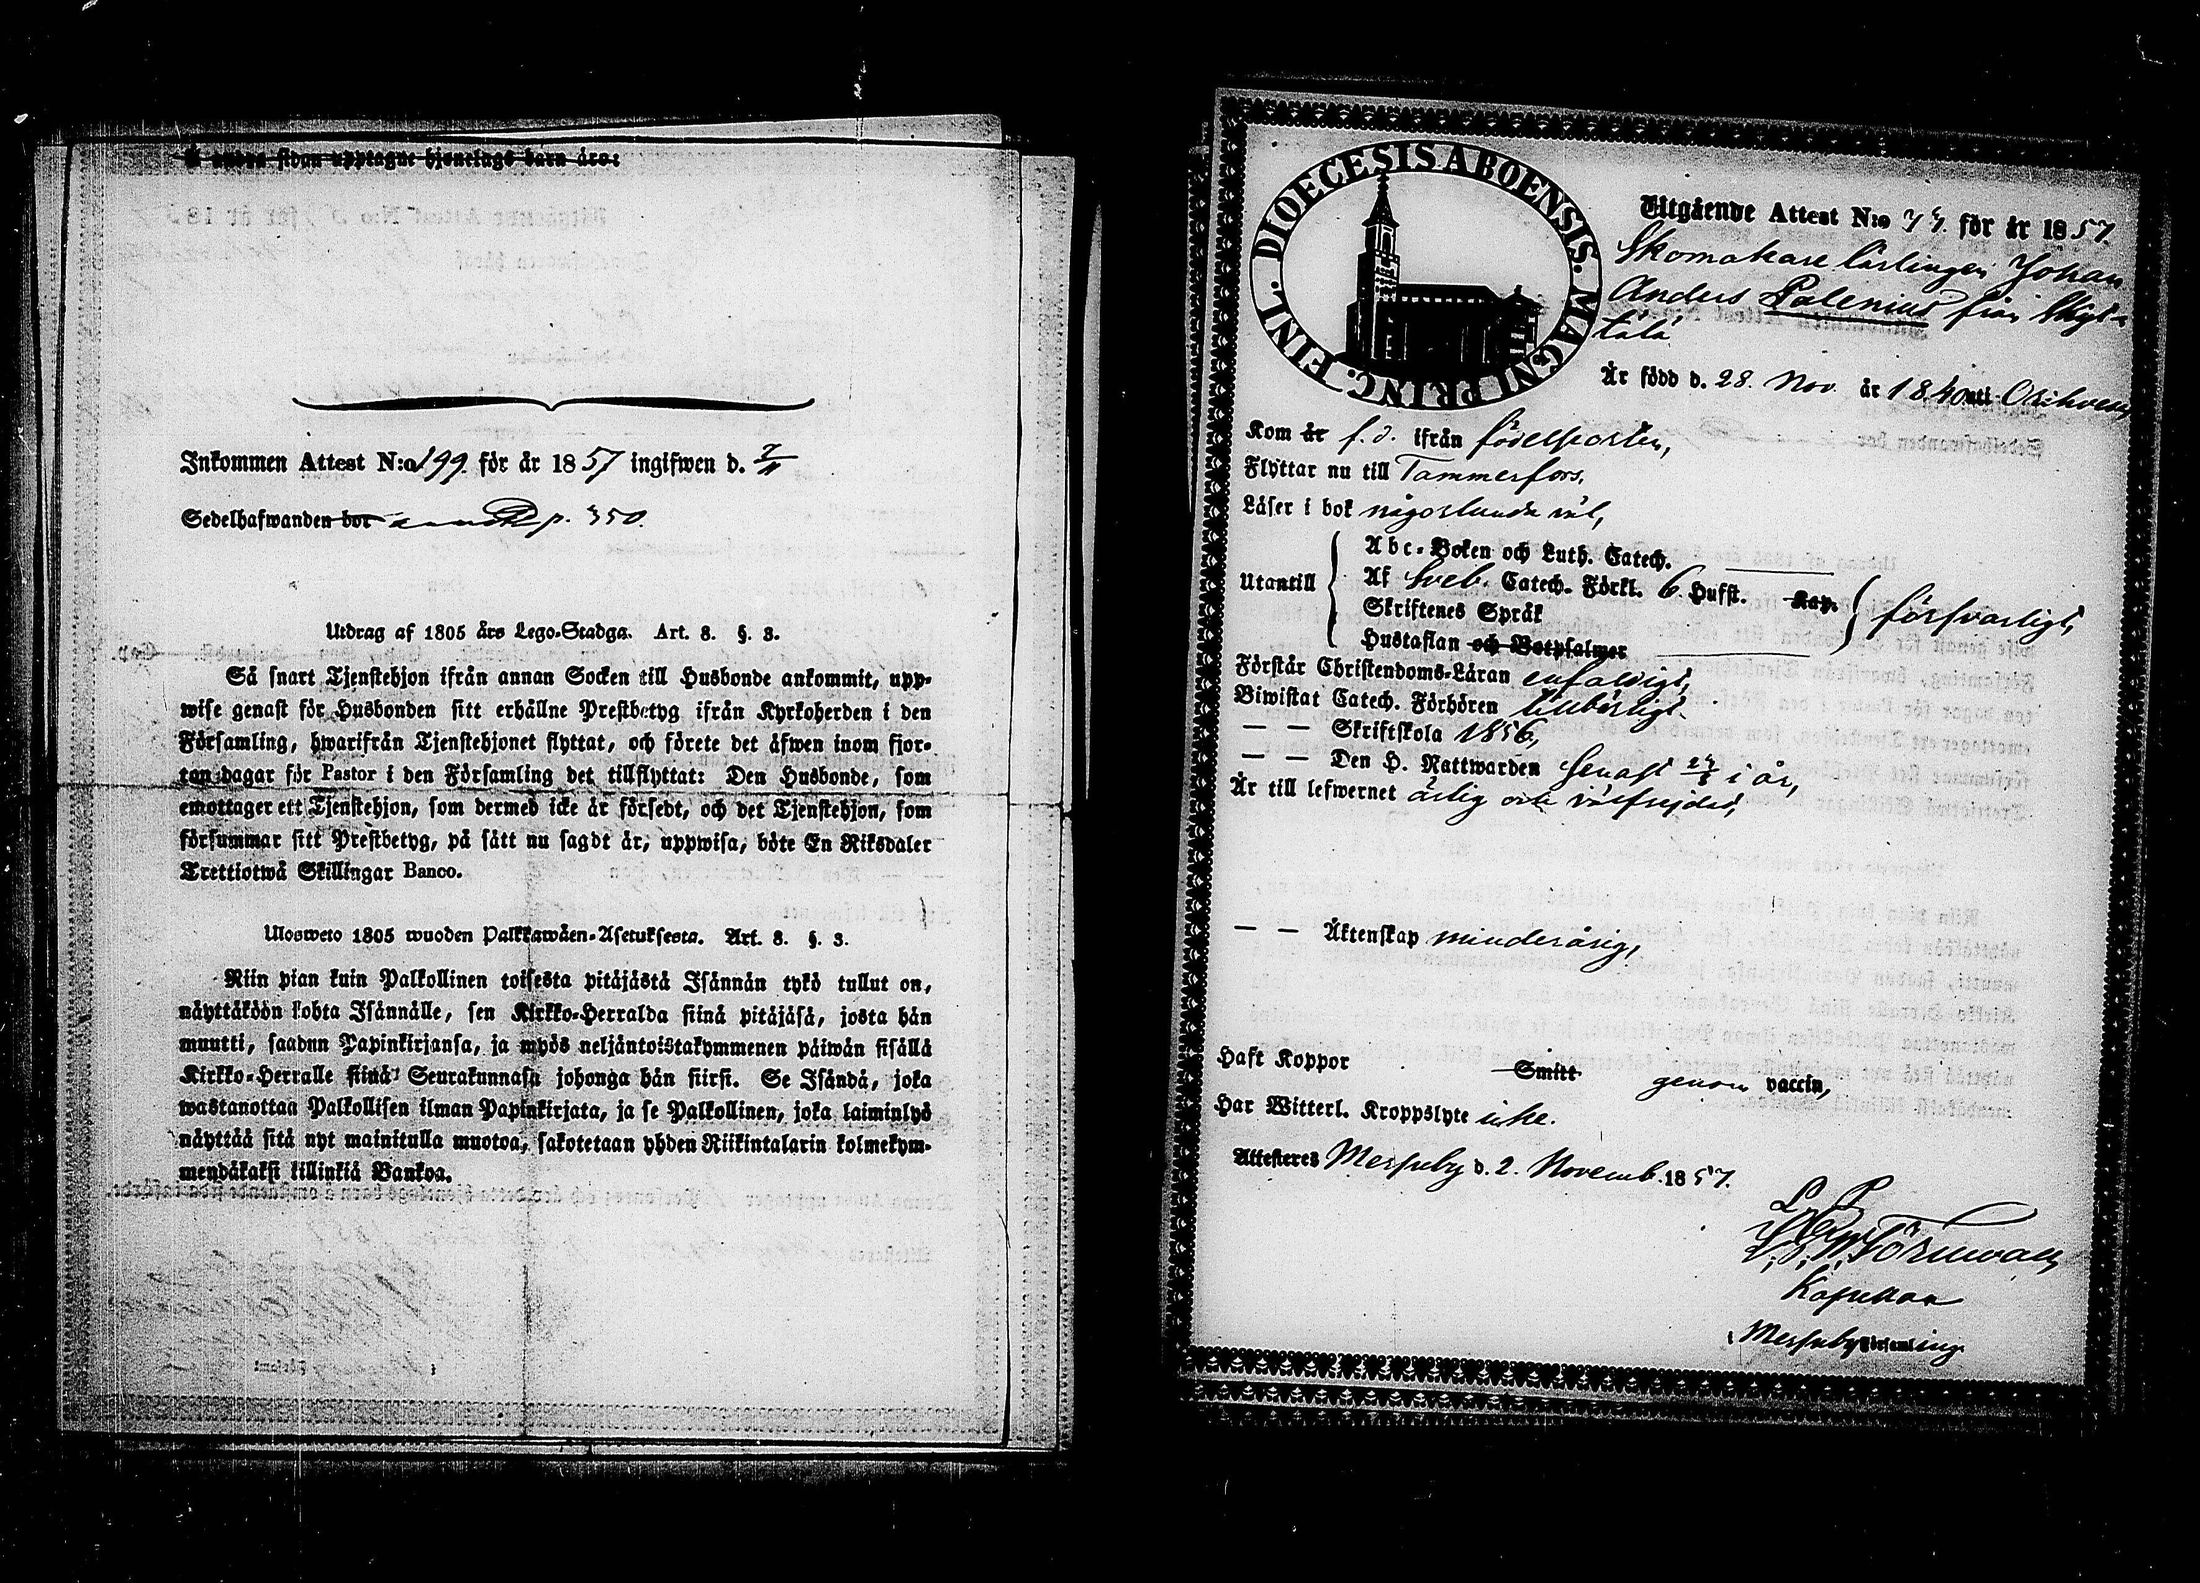 Å andra sidan upptagne hjonelags barn äro:
Inkommen Attest N:o 199. för år 1857 ingifwen d. 7/11
Sedelhafwanden bor p. 350.
Utdrag af 1805 års Lego-Stadga. Art. 8. §. 3.
Så snart Tjenstehjon ifrån annan Socken till Husbonde ankommit, upp-
wise genast för Husbonden sitt erhållne Prestbetyg ifrån Kyrkoherden i den
Församling, hwarifrån Tjenstehjonet flyttat, och förete det äfwen inom fjor-
ton dagar för Pastor i den Församling det tillflyttat: Den Husbonde, som
emottager ett Tjenstehjon, som dermed icke är försedt, och det Tjenstehjon, som
försummar sitt Prestbetyg, på sätt nu sagdt är, uppwisa, böte En Riksdaler
Trettiotwå Skillingar Banco.
Ulosweto 1805 wuoden Palkkawäen-Asetuksesta. Art. 8. §. 3.
Niin pian kuin Palkollinen toisesta pitäjästä Isännän tykö tullut on,
näyttäköön kohta Isännälle, sen Kirkko-Herralda siinä pitäjäsä, josta hän
muutti, saadun Papinkirjansa, ja myös neljäntoistakymmenen päiwän sisällä
Kirkko-Herralle siinä Seurakunnasa johonga hän siirsi. Se Isändä, joka
wastanottaa Palkollisen ilman Papinkirjata, ja se Palkollinen, joka laiminlyö
näyttää sitä nyt mainitulla muotoa, sakotetaan yhden Riikintalarin kolmekym-
mendäkaksi killinkiä Bankoa.
DIOECESIS ABOENSIS. MAGNI PRINC. FINL.
Utgående Attest N:o 74. för år 1857.
Skomakare lärlingen Johan
Anders Palenius från Skyt-
tälä
Är född d. 28. Nov. år 1840 uti Orihvesi
Kom år f. d. ifrån födelseorten,
Flyttar nu till Tammerfors.
Läser i bok någorlunda väl,
Utantill
Abc-Boken och Luth. Catech.
Af Sveb. Catech. Förkl. 6 Hufst. Kap.
Skriftenes Språk
Hustaflan och Botpsalmer
försvarligt,
Förstår Christendoms-Läran enfaldigt,
Biwistat Catech. Förhören tillbörligt.
— — Skriftskola 1856,
— — Den H. Nattwarden senast i år,
Är till lefwernet ärlig och välfrejdad,
— — Äktenskap minderårig,
Haft Koppor Smitt genom vaccin,
Har Witterl. Kroppslyte icke.
Attesteres Messuby d. 2. Novemb. 1857.
Törnwall
Kapellan
i Messuby Församling